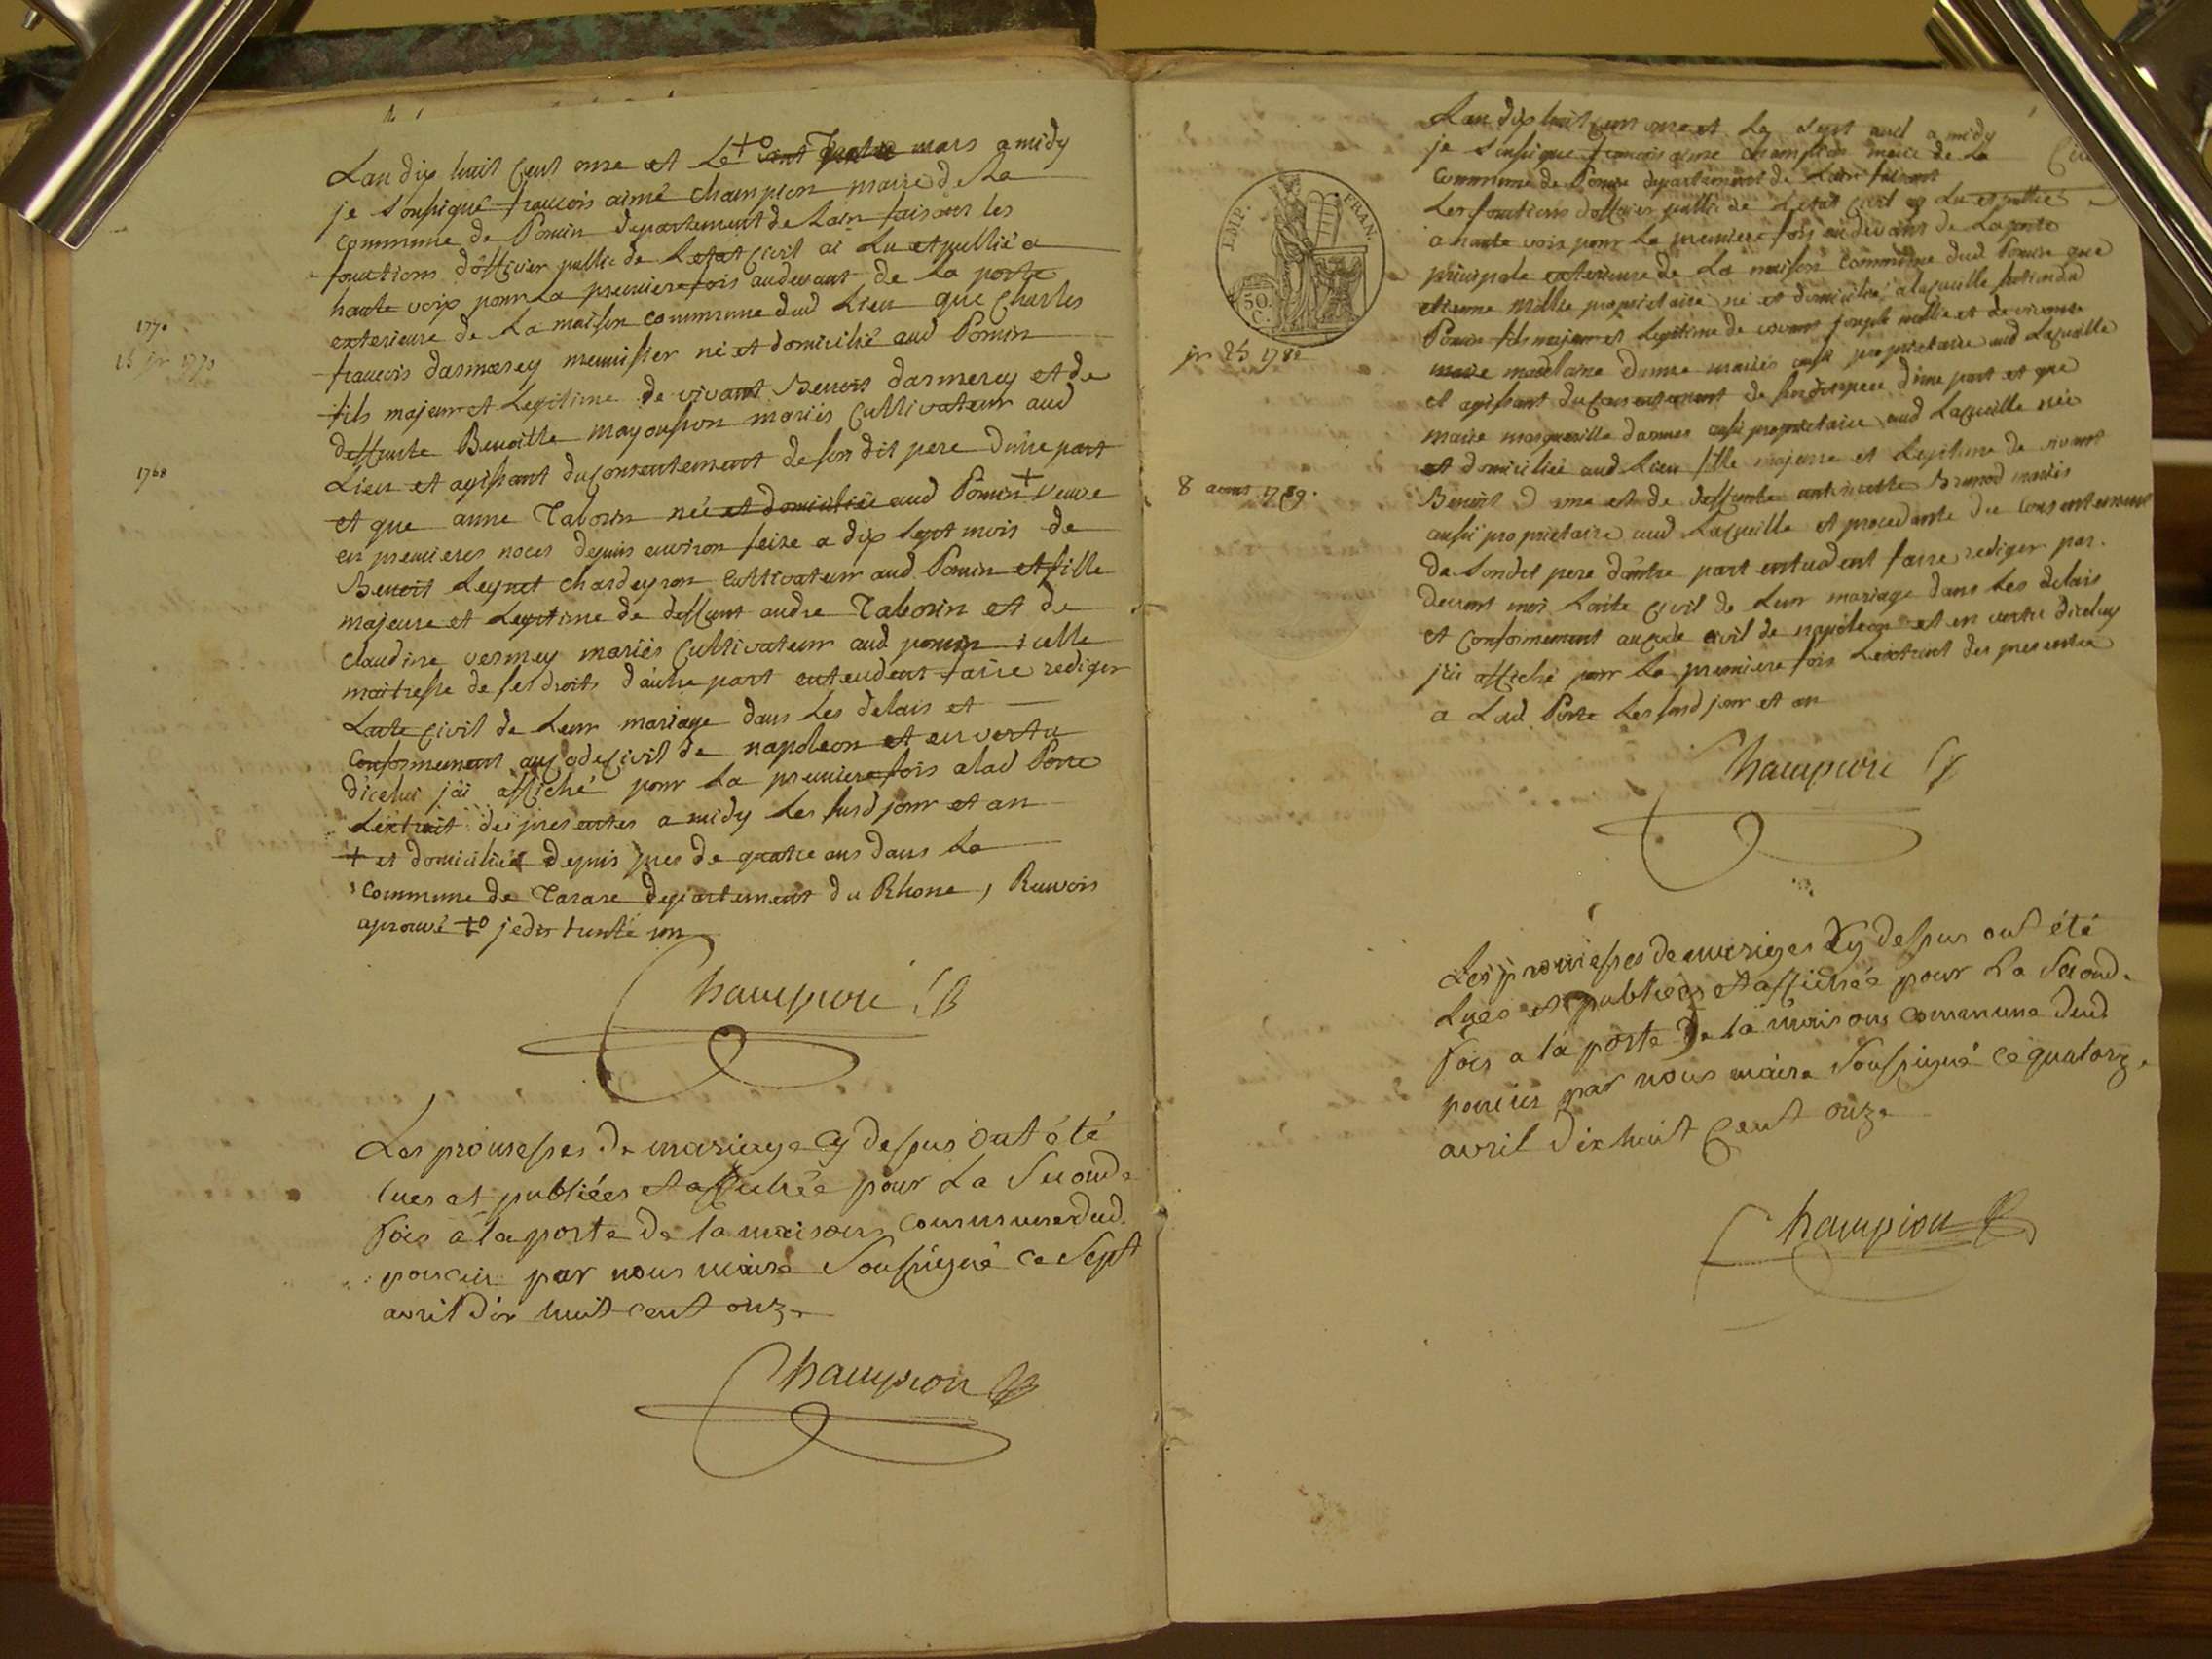 Lan dix huit cent onse et Le +o vint quatre mars a midy
je soussigné francois aimé champion maire de La
commune de Poncin departement de Lain faisant les
fonctions d'officier public de Letat civil ai Lu et publié a
haute voix pour La premiere fois audevant de La porte
exterieure de La maison commune dud Lieu que Charles
francois dasmerey meunissier né et domicilié aud Poncin
fils majeur et Legitime de vivant Benoit dasmerey et de
deffunte Benoitte mayousson mariés cultivateur aud
Lieu et agissant du consentement de son dit pere d'une part
et que anne Taborin née et domiciliée aud Poncin + veuve
en premieres noces depuis environ seize a dix sept mois de
Benoit Leynet chardeyron cultivateur aud Poncin et fille
majeure et Legitime de deffunt andre Taborin et de
claudine vermey mariés cultivateur aud poncin icelle
maitresse de ses droits d'autre part entendent faire rediger
Lacte civil de Leur mariage dans Les delais et
conformement au code civil de napoleon et en vertu
d'icelui j'ai affiché pour La premiere fois alad Porte
Lextrait des presentes a midy Les susd jour et an
+ et domiciliée depuis pres de quatre ans dans La
commune de Tarare departement du Rhone, Renvois
aprouvé +o je dis trente un
Champion
Les promesses de mariage cy dessus ont été
lues et publiées et affichée pour La Seconde
fois a la porte de la maison commune dud.
poncin par nous maire Soussigné ce Sept
avril dix huit cent onze
Champion
1770
15 jr 1773
1768
IMP. FRAN.
50 C.
jr 25 1782
8 aoust 1789.
Lan dix huit cent onse et Le sept avril a midy
je soussigné francois aimé champion maire de La
commune de Poncin departement de Lain faisant
Les fonctions d'officier public de Letat civil ay Lu et publié
a haute voix pour La premiere fois audevant de La porte
principale exterieure de La maison commune dud Poncin que
etienne mollie proprietaire né et domicilié a lacueille
Poncin fils majeur et Legitime de vivant joseph mollie et de vivante
marie madelaine mariés aussi proprietaire aud Lacueille
et agissant du consentement de sondit pere d'une part et que
marie aussi proprietaire aud Lacueille née
et domiciliée aud Lieu fille majeure et Legitime de vivant
Benoit et de deffunte antoinette Brunod mariés
aussi proprietaire aud Lacueille et procedante du consentement
de sondit pere d'autre part entendent faire rediger par
devant moi Lacte civil de Leur mariage dans Les delais
et conformement au code civil de napoleon et en vertu diceluy
j'ai affiché pour La premiere fois Lextrait des presentes
a Lad Porte Les susd jour et an
Champion
Les promesses de mariages cy dessus ont été
Lues et publiées et affichée pour La Seconde
fois a la porte de la maison commune dud.
poncin par nous maire Soussigné ce quatorze
avril dix huit cent onze
Champion